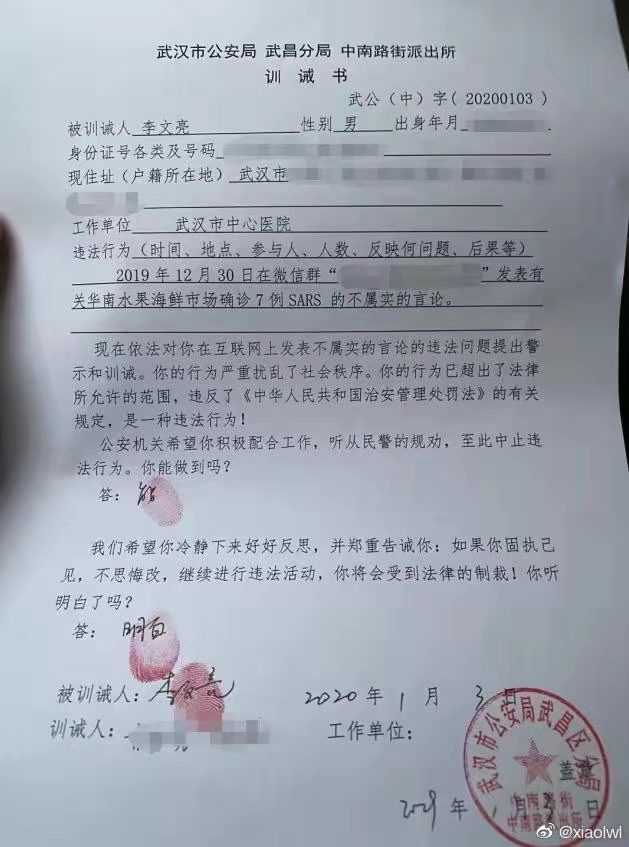 武汉市公安局 武昌分局 中南路街派出所
训 诫 书
武公（中）字（20200103）
被训诫人 李文亮 性别 男 出身年月
身份证号各类及号码
现住址（户籍所在地） 武汉市
工作单位 武汉市中心医院
违法行为（时间、地点、参与人、人数、反映何问题、后果等）
2019年12月30日在微信群“ ”发表有
关华南水果海鲜市场确诊7例SARS的不属实的言论。
现在依法对你在互联网上发表不属实的言论的违法问题提出警
示和训诫。你的行为严重扰乱了社会秩序。你的行为已超出了法律
所允许的范围，违反了《中华人民共和国治安管理处罚法》的有关
规定，是一种违法行为！
公安机关希望你积极配合工作，听从民警的规劝，至此中止违
法行为。你能做到吗？
答：能
我们希望你冷静下来好好反思，并郑重告诫你：如果你固执己
见，不思悔改，继续进行违法活动，你将会受到法律的制裁！你听
明白了吗？
答：明白
被训诫人：李文亮 2020年1月3日
训诫人： 工作单位：
武汉市公安局武昌区分局
盖章
中南路街
中南路派出所
年 月 日
@xiaolwl